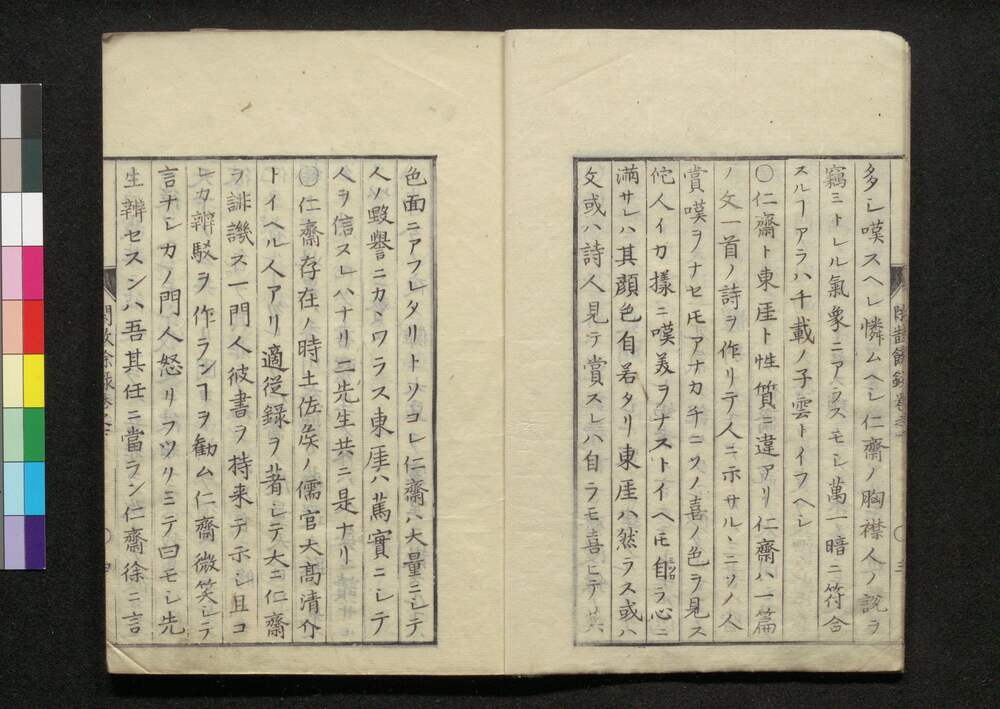 多シ嘆スヘシ憐ムヘシ仁齋ノ胸襟人ノ說ヲ
竊ミトレル氣象ニアラスモシ萬一暗ニ符合
スルヿアラハ千載ノ子雲トイフヘシ
〇仁齋ト東厓ト性質ニ違アリ仁齋ハ一篇
ノ文一首ノ詩ヲ作リテ人ニ示サルヽニソノ人
賞嘆ヲナセ𪜈アナカチニソノ喜ノ色ヲ見ス
佗人イカ樣ニ嘆美ヲナストイヘ𪜈自ラ心ニ
滿サレハ其顔色自若タリ東厓ハ然ラス或ハ
文或ハ詩人見テ賞スレハ自ラモ喜ヒテ其
色面ニアフレタリトソコレ仁齋ハ大量ニシテ
人ノ毀譽ニカヽワラス東厓ハ篤實ニシテ
人ヲ信スレハナリ二先生共ニ是ナリ
〇仁齋存在ノ時土佐矦ノ儒官大髙清介
トイヘル人アリ適從錄ヲ著シテ大ニ仁齋
ヲ誹譏ス一門人彼書ヲ持来テ示シ且コ
レカ辨駁ヲ作ランヿヲ勸ム仁齋微笑シテ
言ナシカノ門人怒リフツリミテ曰モシ先
生辨セスンハ吾其任ニ當ラン仁齋徐ニ言